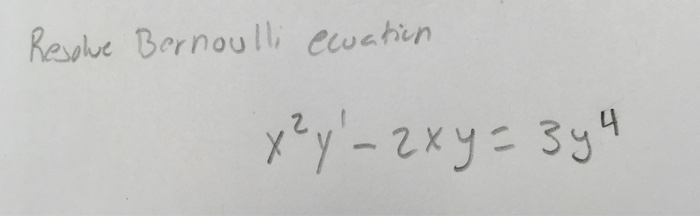 Resolve Bernoulli ecuation
x²y' - 2xy = 3y⁴